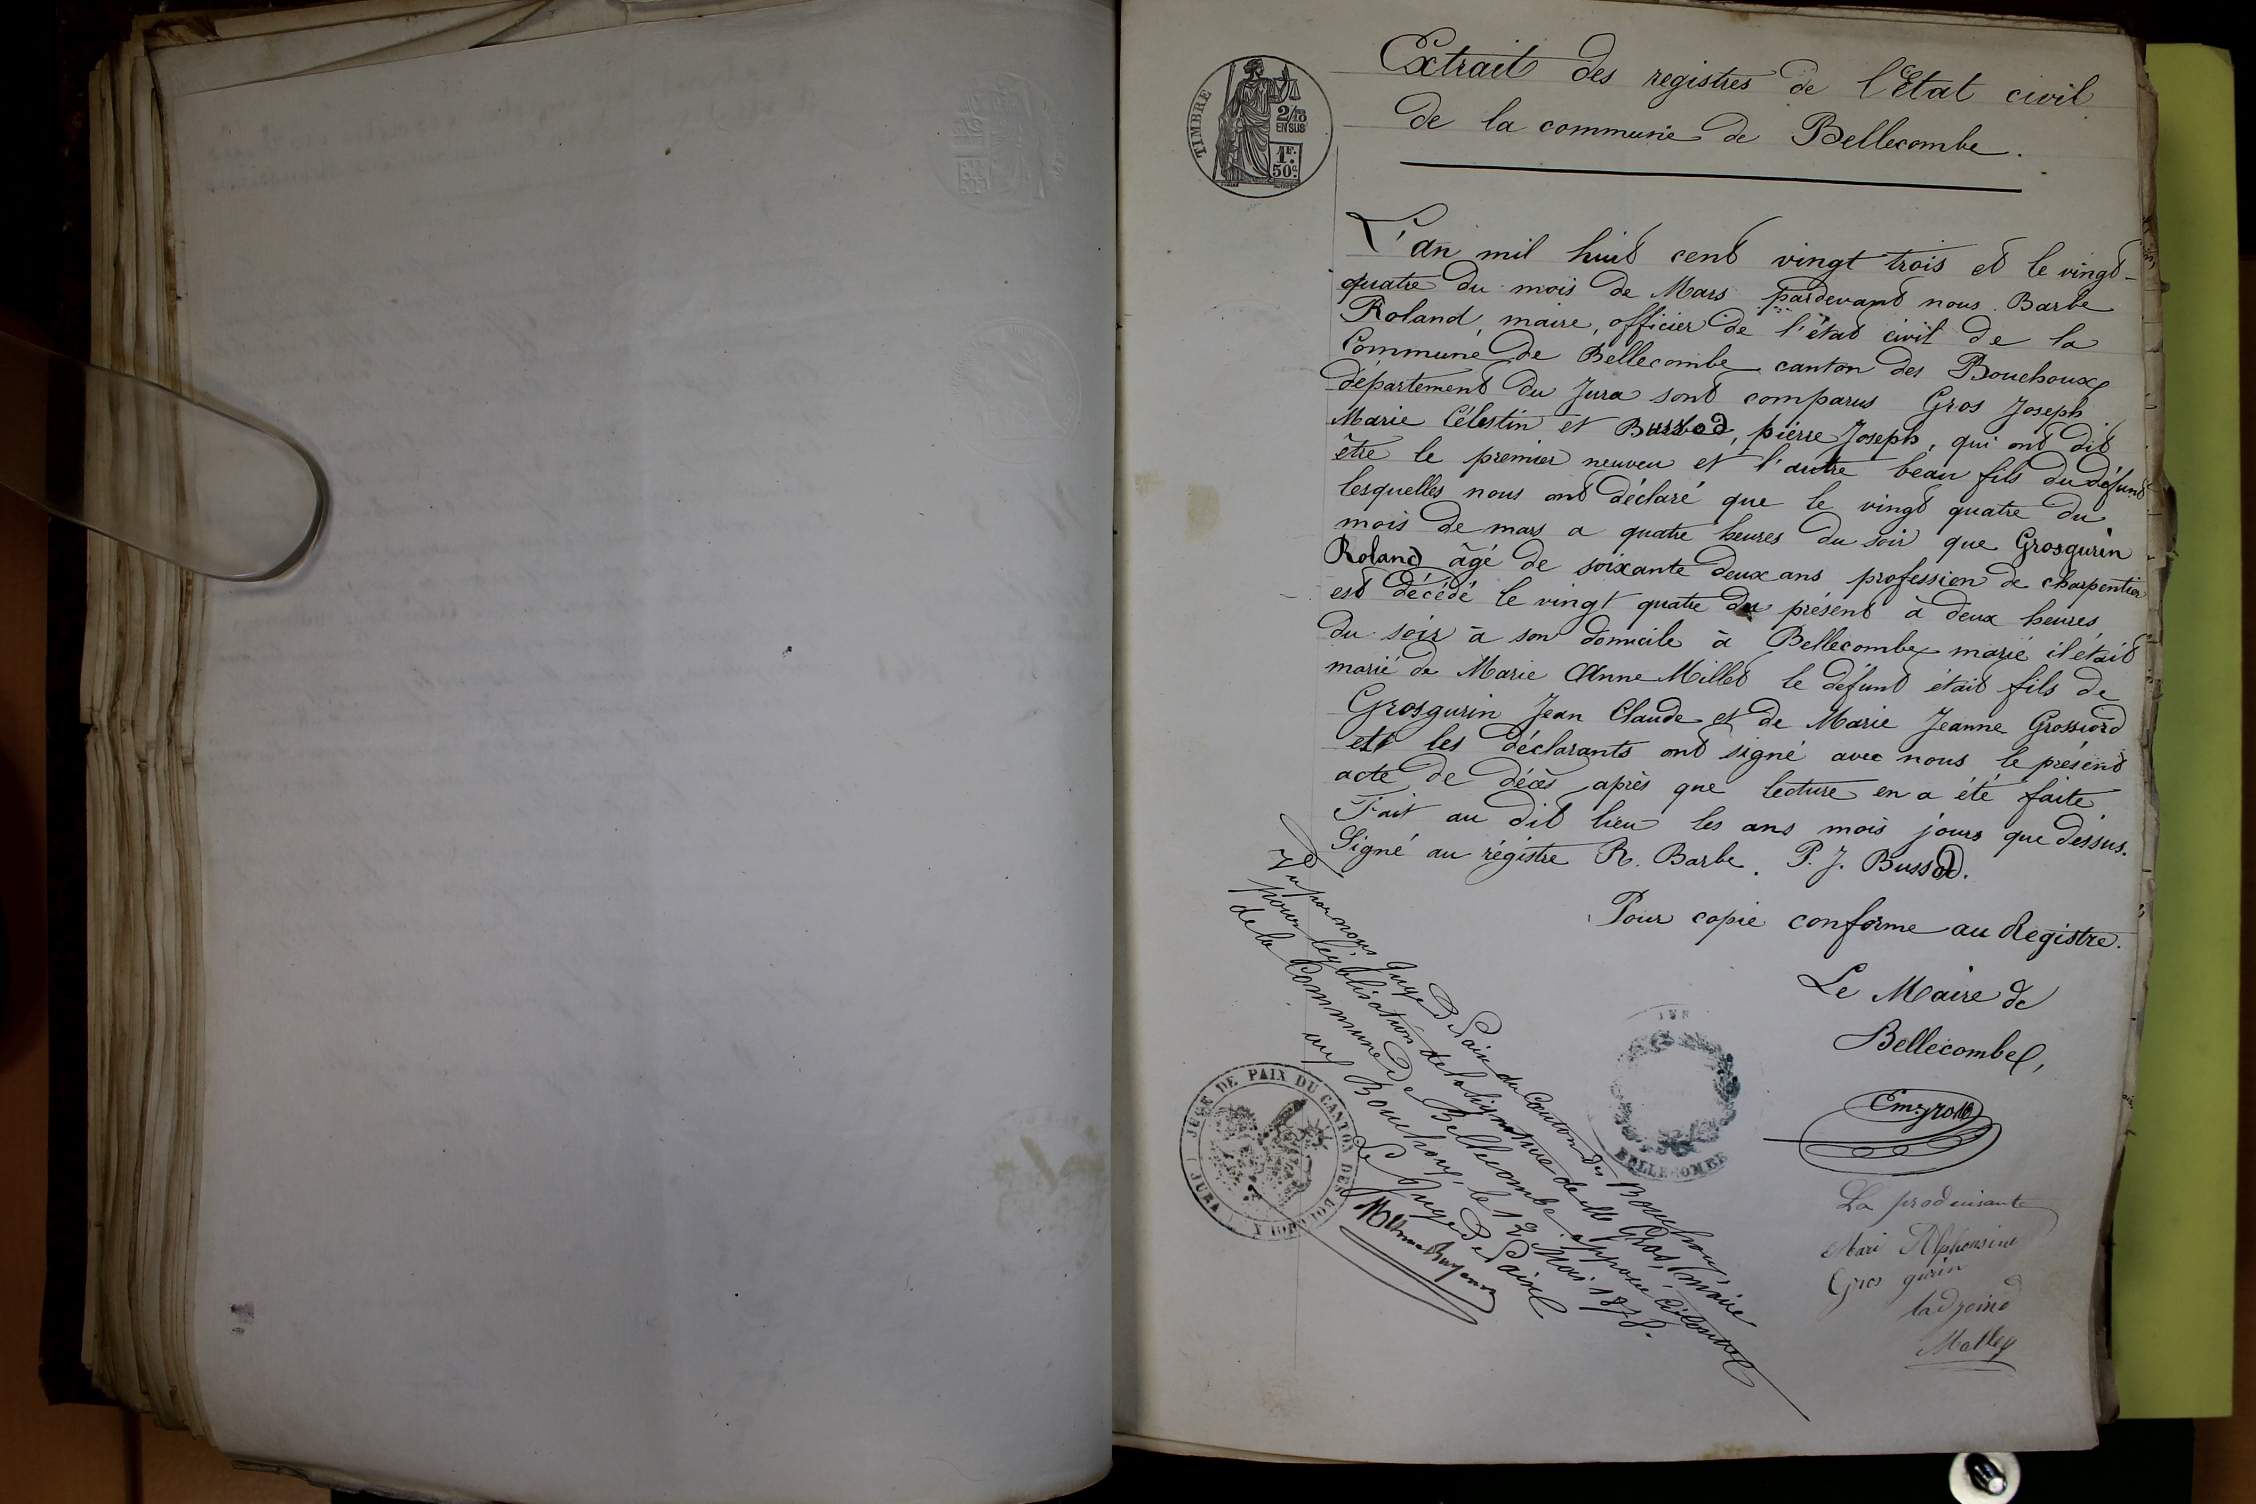 Extrait des registres de l'Etat civil
de la commune de Bellecombe.
TIMBRE
2/10
EN SUS
1F.
50c.
L'an mil huit cent vingt trois et le vingt-
quatre du mois de Mars pardevant nous Barbe
Roland, maire, officier de l'état civil de la
Commune de Bellecombe canton des Bouchoux
département du Jura sont comparus Gros Joseph
Marie Célestin et Bussod, pierre Joseph, qui ont dit
être le premier neuveu et l'autre beau fils du défunt
lesquelles nous ont déclaré que le vingt quatre du
mois de mars a quatre heures du soir que Grosgurin
Roland âgé de soixante deux ans profession de charpentier
est décédé le vingt quatre du présent à deux heures
du soir à son domicile à Bellecombe marié il était
marié de Marie Anne Millet le défunt était fils de
Grosgurin Jean Claude et de Marie Jeanne Grossiord
et les déclarants ont signé avec nous le présent
acte de décès après que lecture en a été faite
Fait au dit lieu les ans mois jours que dessus.
Signé au régistre R. Barbe. P. J. Bussod.
Pour copie conforme au Registre.
Le Maire de
Bellecombe,
Vu par nous Juge de Paix du Canton des Bouchoux,
pour légalisation de la signature de Mr Gros, maire
de la Commune de Bellecombe apposée
aux Bouchoux, le 12 Mai 1878.
Le Juge de Paix
JUGE DE PAIX DU CANTON DES BOUCHOUX
( JURA )
BELLECOMBE
La produisante
Mari Alphonsine
Gros gurin